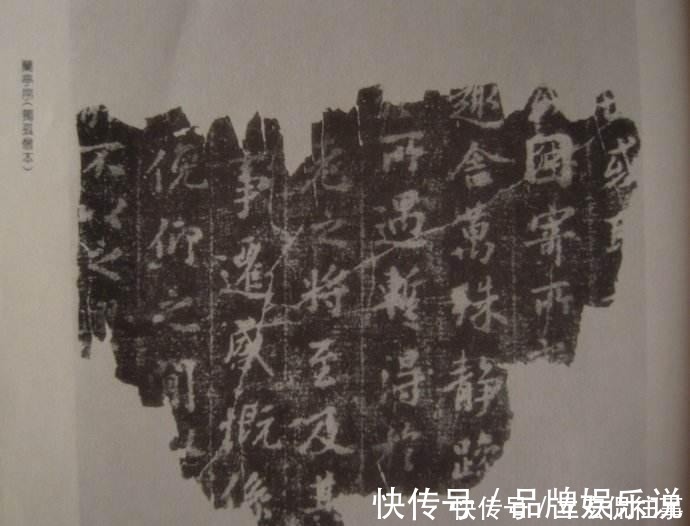 蘭亭序(獨孤僧本)
或
因寄所
趣舍萬殊靜躁
所遇暫得於
老之將至及其
事遷感慨係
俛仰之間
不以之
快传号/品牌娱乐说
快传号/